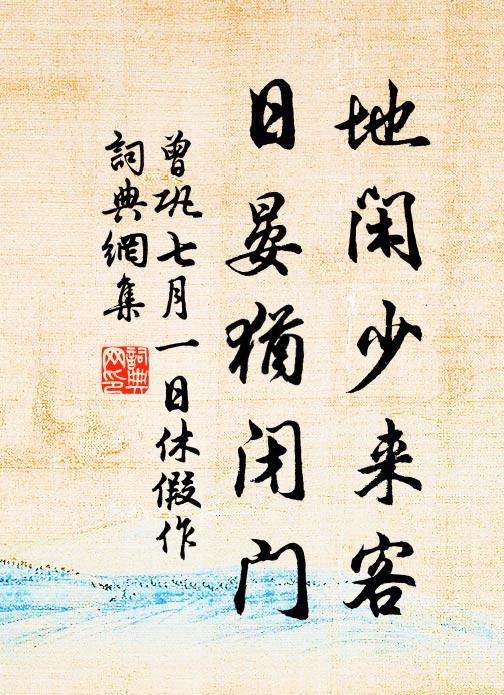 地闲少来客
日晏猶闭门
曾巩七月一日休假作
詞典網集
詞典
网印